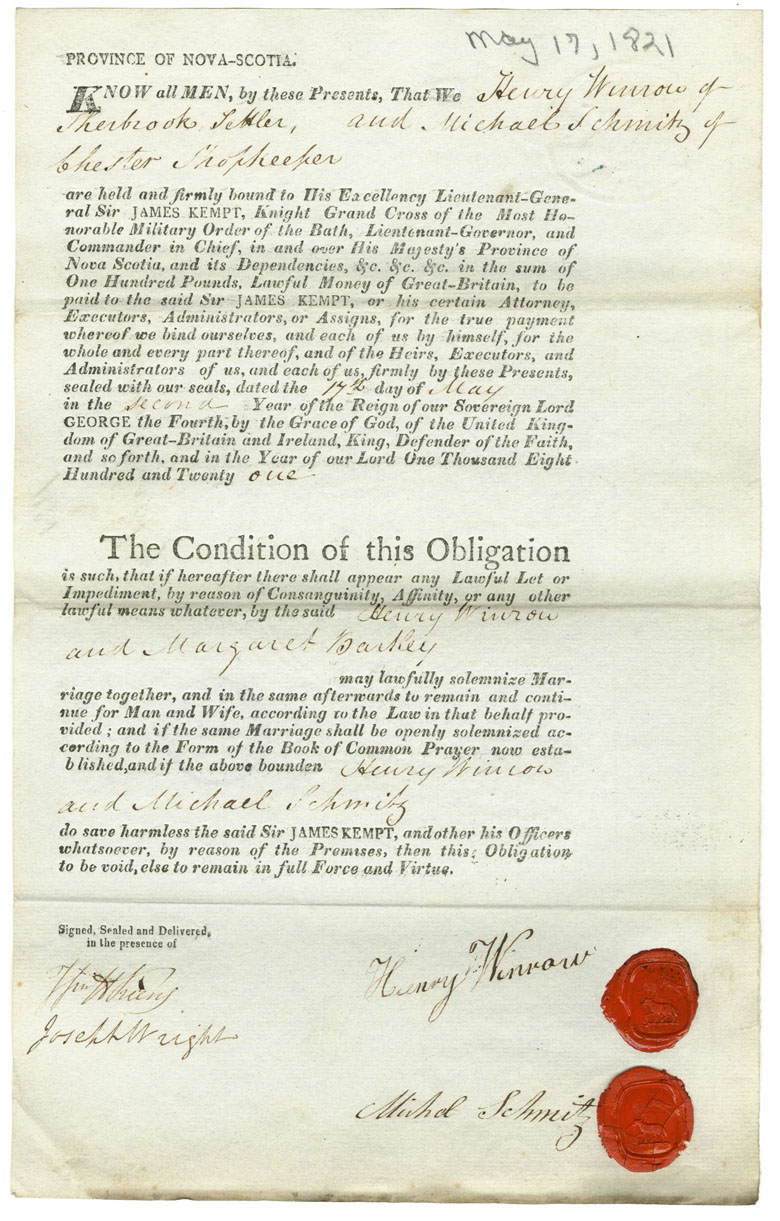 May 17, 1821
PROVINCE OF NOVA-SCOTIA.
KNOW all MEN, by these Presents, That We Henry Winrow of
Sherbrook Settler, and Michael Schmitz of
Chester Shopkeeper
are held and firmly bound to His Excellency Lieutenant-Gene-
ral Sir JAMES KEMPT, Knight Grand Cross of the Most Ho-
norable Military Order of the Bath, Lieutenant-Governor, and
Commander in Chief, in and over His Majesty's Province of
Nova Scotia, and its Dependencies, &c. &c. &c. in the sum of
One Hundred Pounds, Lawful Money of Great-Britain, to be
paid to the said Sir JAMES KEMPT, or his certain Attorney,
Executors, Administrators, or Assigns, for the true payment
whereof we bind ourselves, and each of us by himself, for the
whole and every part thereof, and of the Heirs, Executors, and
Administrators of us, and each of us, firmly by these Presents,
sealed with our seals, dated the 17th day of May
in the second Year of the Reign of our Sovereign Lord
GEORGE the Fourth, by the Grace of God, of the United King-
dom of Great-Britain and Ireland, King, Defender of the Faith,
and so forth, and in the Year of our Lord One Thousand Eight
Hundred and Twenty one
The Condition of this Obligation
is such, that if hereafter there shall appear any Lawful Let or
Impediment, by reason of Consanguinity, Affinity, or any other
lawful means whatever, by the said Henry Winrow
and Margaret Barkey
may lawfully solemnize Mar-
riage together, and in the same afterwards to remain and conti-
nue for Man and Wife, according to the Law in that behalf pro-
vided; and if the same Marriage shall be openly solemnized ac-
cording to the Form of the Book of Common Prayer now esta-
blished, and if the above bounden Henry Winrow
and Michael Schmitz
do save harmless the said Sir JAMES KEMPT, and other his Officers
whatsoever, by reason of the Premises, then this Obligation
to be void, else to remain in full Force and Virtue.
Signed, Sealed and Delivered,
in the presence of
Henry Winrow
Joseph Wright
Michel Schmitz